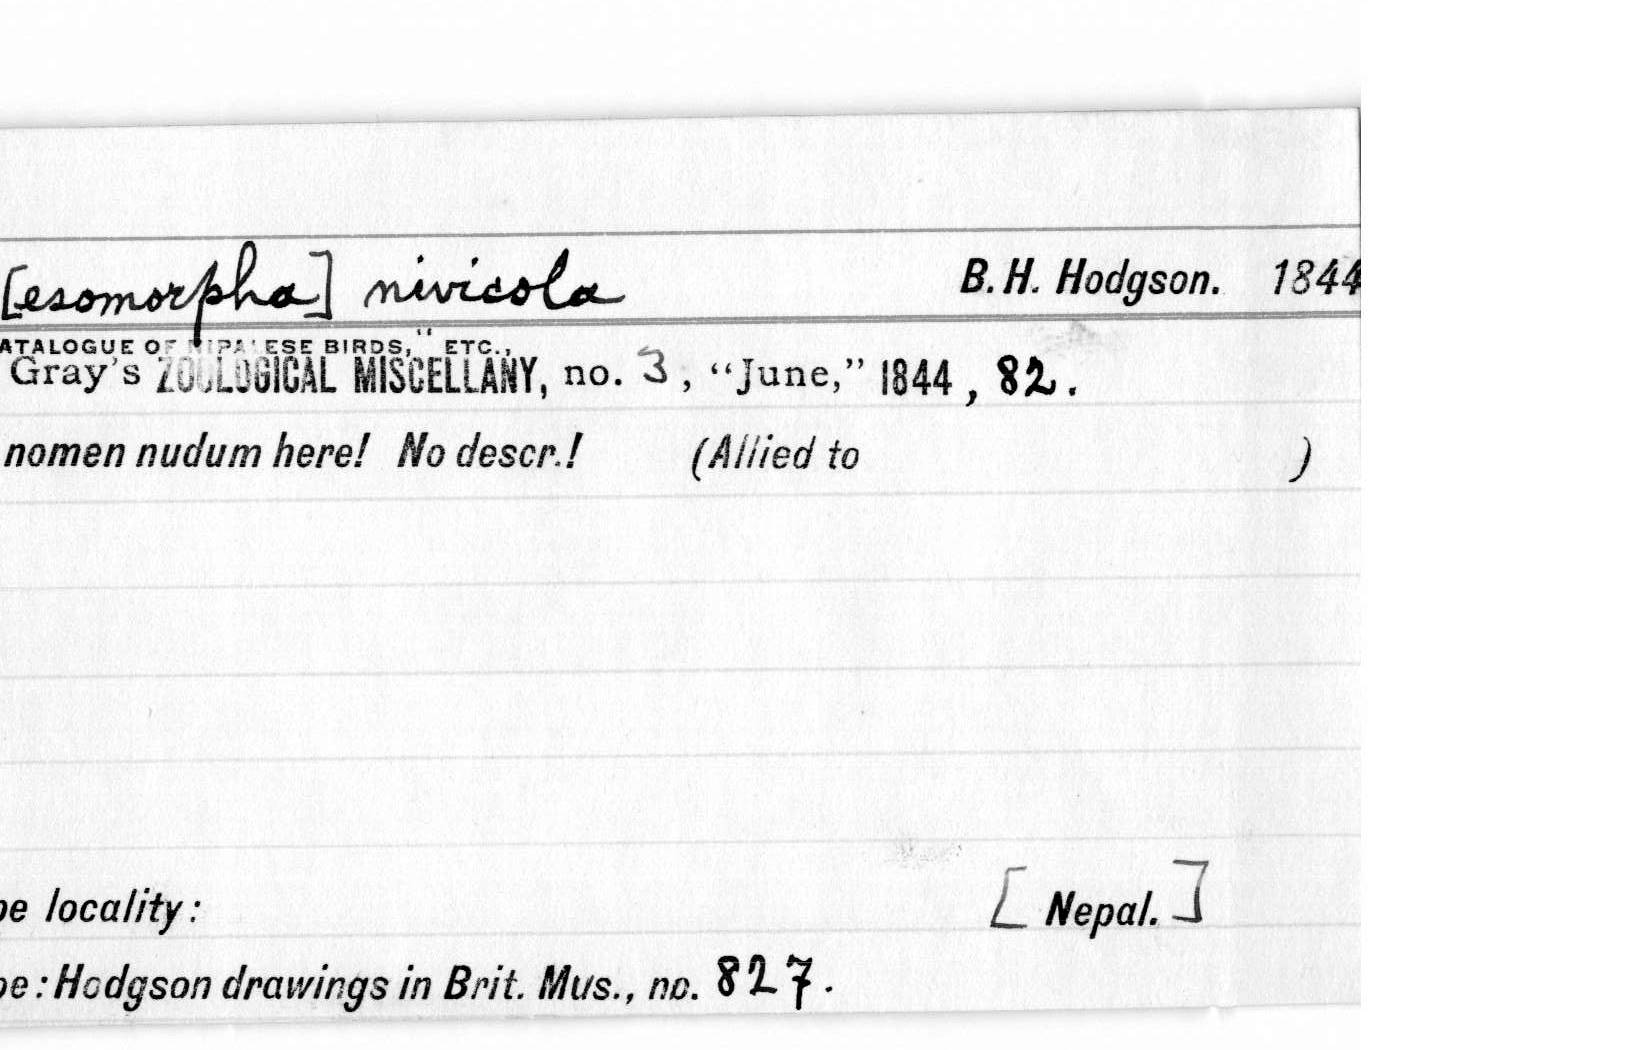 [esomorpha] nivicola B. H. Hodgson. 1844
ATALOGUE OF NIPALESE BIRDS," ETC.,
Gray's ZOOLOGICAL MISCELLANY, no. 3, "June," 1844, 82.
nomen nudum here! No descr.! (Allied to )
pe locality: [Nepal.]
pe: Hodgson drawings in Brit. Mus., no. 827.